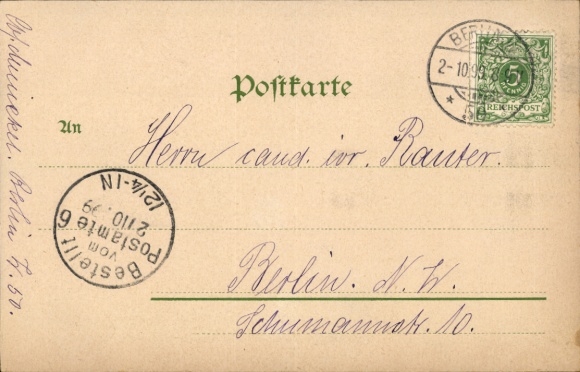 BERLIN
2-10.99
5
REICHSPOST
Postkarte
An
Herrn cand. ivr. Ranter.
Bestellt
vom
Postamte 6
2/10.99
12¼-1N
Berlin. N. W.
Schumannstr. 10.
Berlin W. 50.